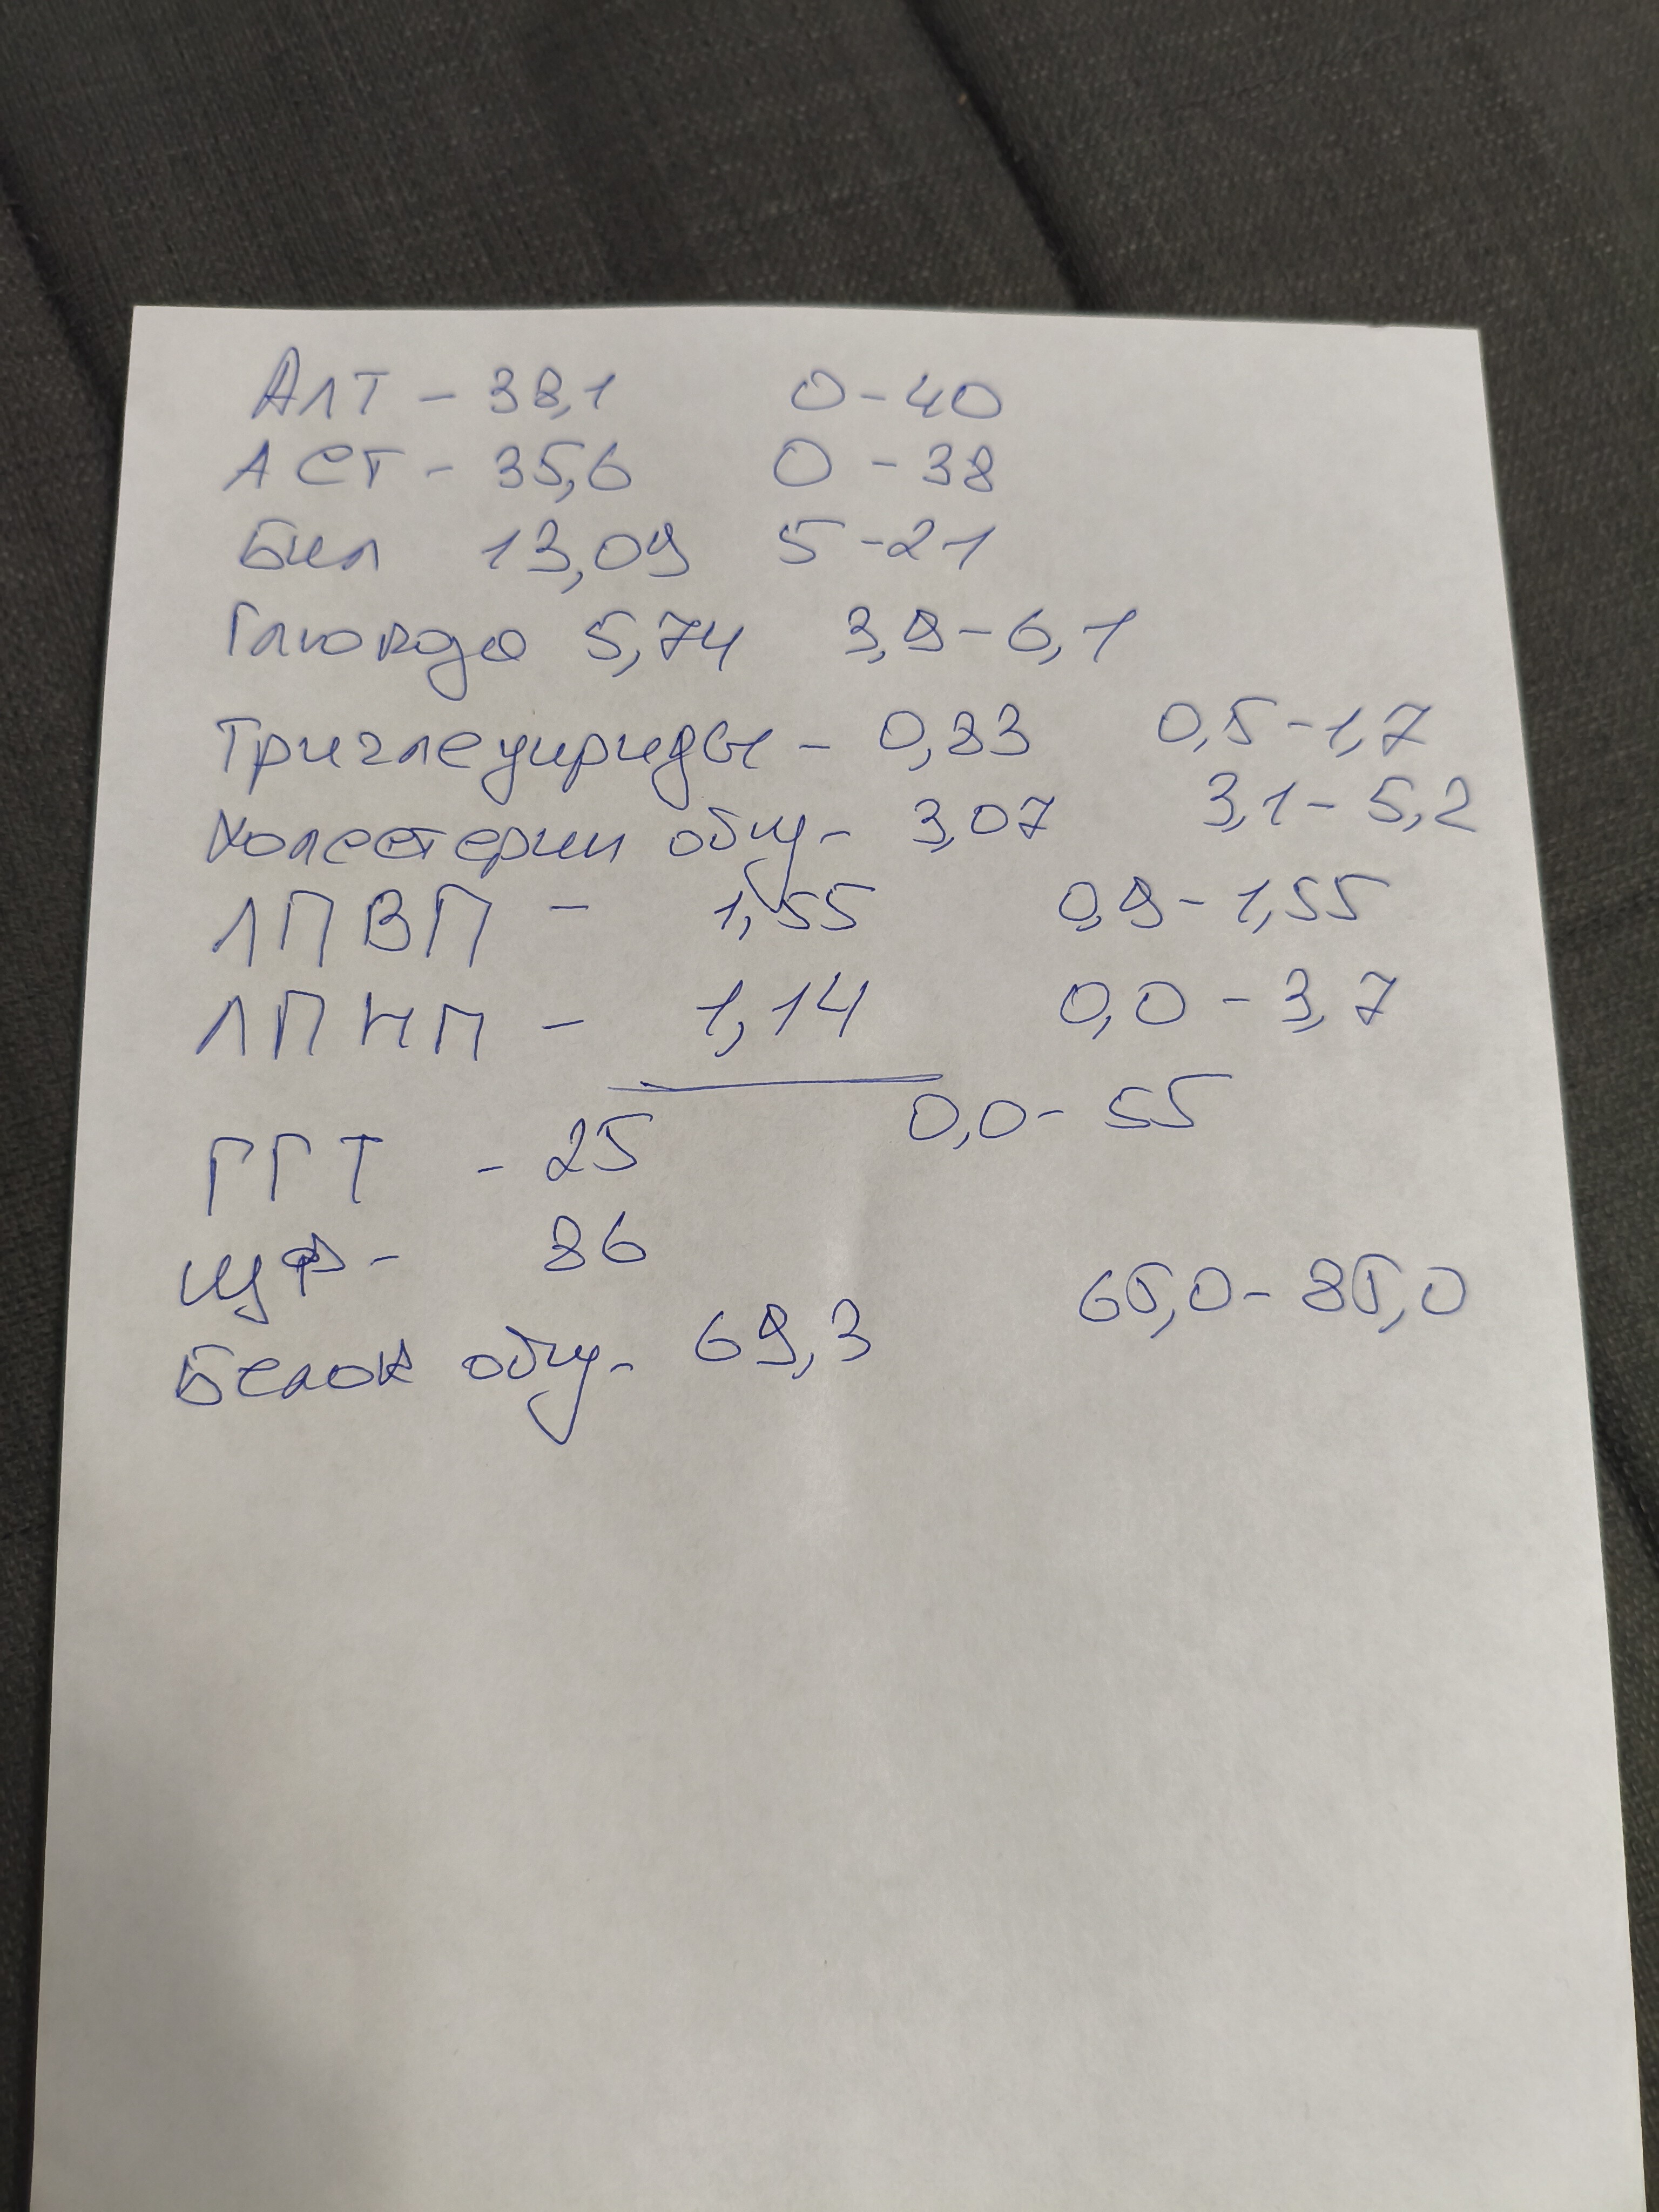 АЛТ - 38,1 0-40
АСТ - 35,6 0-38
Бил 13,09 5-21
Глюкоза 5,74 3,9-6,1
Триглецириды - 0,83 0,5-1,7
Холестерин общ - 3,07 3,1-5,2
ЛПВП - 1,55 0,9-1,55
ЛПНП - 1,14 0,0-3,7
ГГТ - 25 0,0-55
ЩФ - 86
Белок общ - 69,3 65,0-85,0